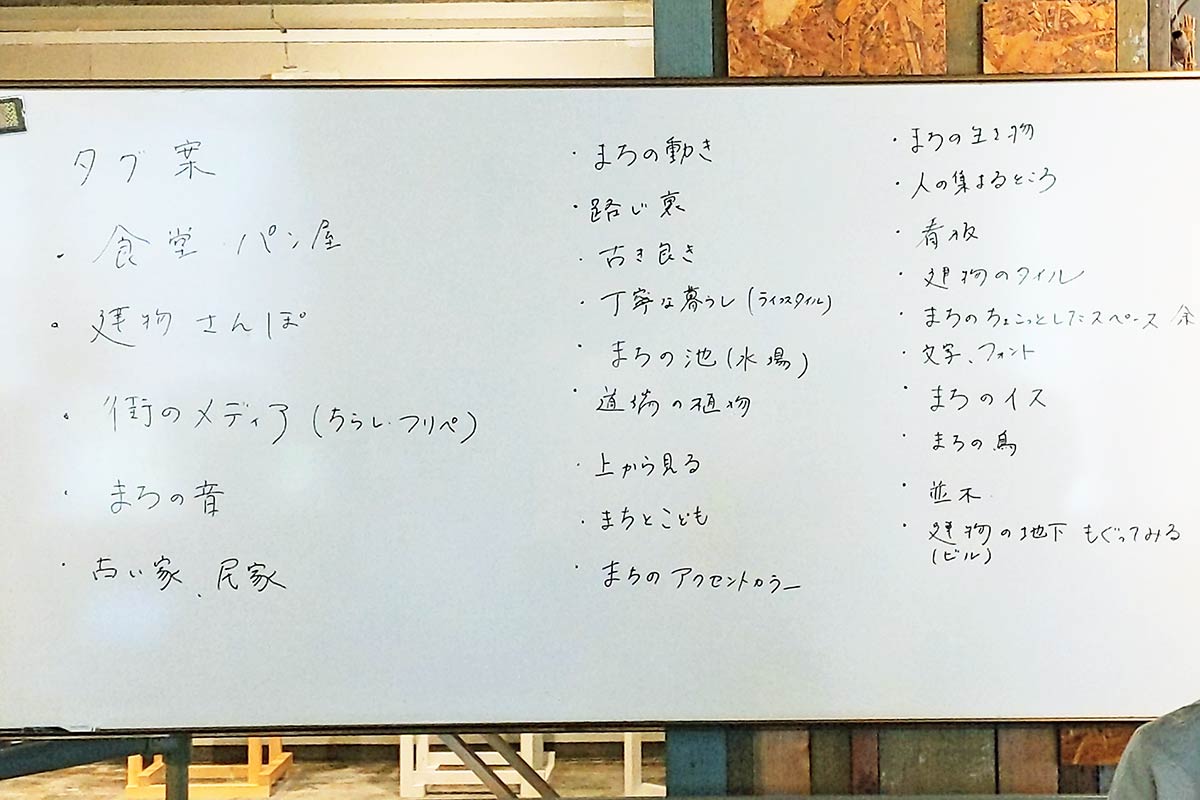 タグ案
・食堂・パン屋
・建物さんぽ
・街のメディア(ちらし・フリペ)
・まちの音
・古い家、民家
・まちの動き
・路じ裏
・古き良き
・丁寧な暮らし(ライフスタイル)
・まちの池(水場)
・道端の植物
・上から見る
・まちとこども
・まちのアクセントカラー
・まちの生き物
・人の集まるところ
・看板
・建物のタイル
・まちのちょこっとしたスペース 余
・文字、フォント
・まちのイス
・まちの鳥
・並木
・建物の地下 もぐってみる
(ビル)